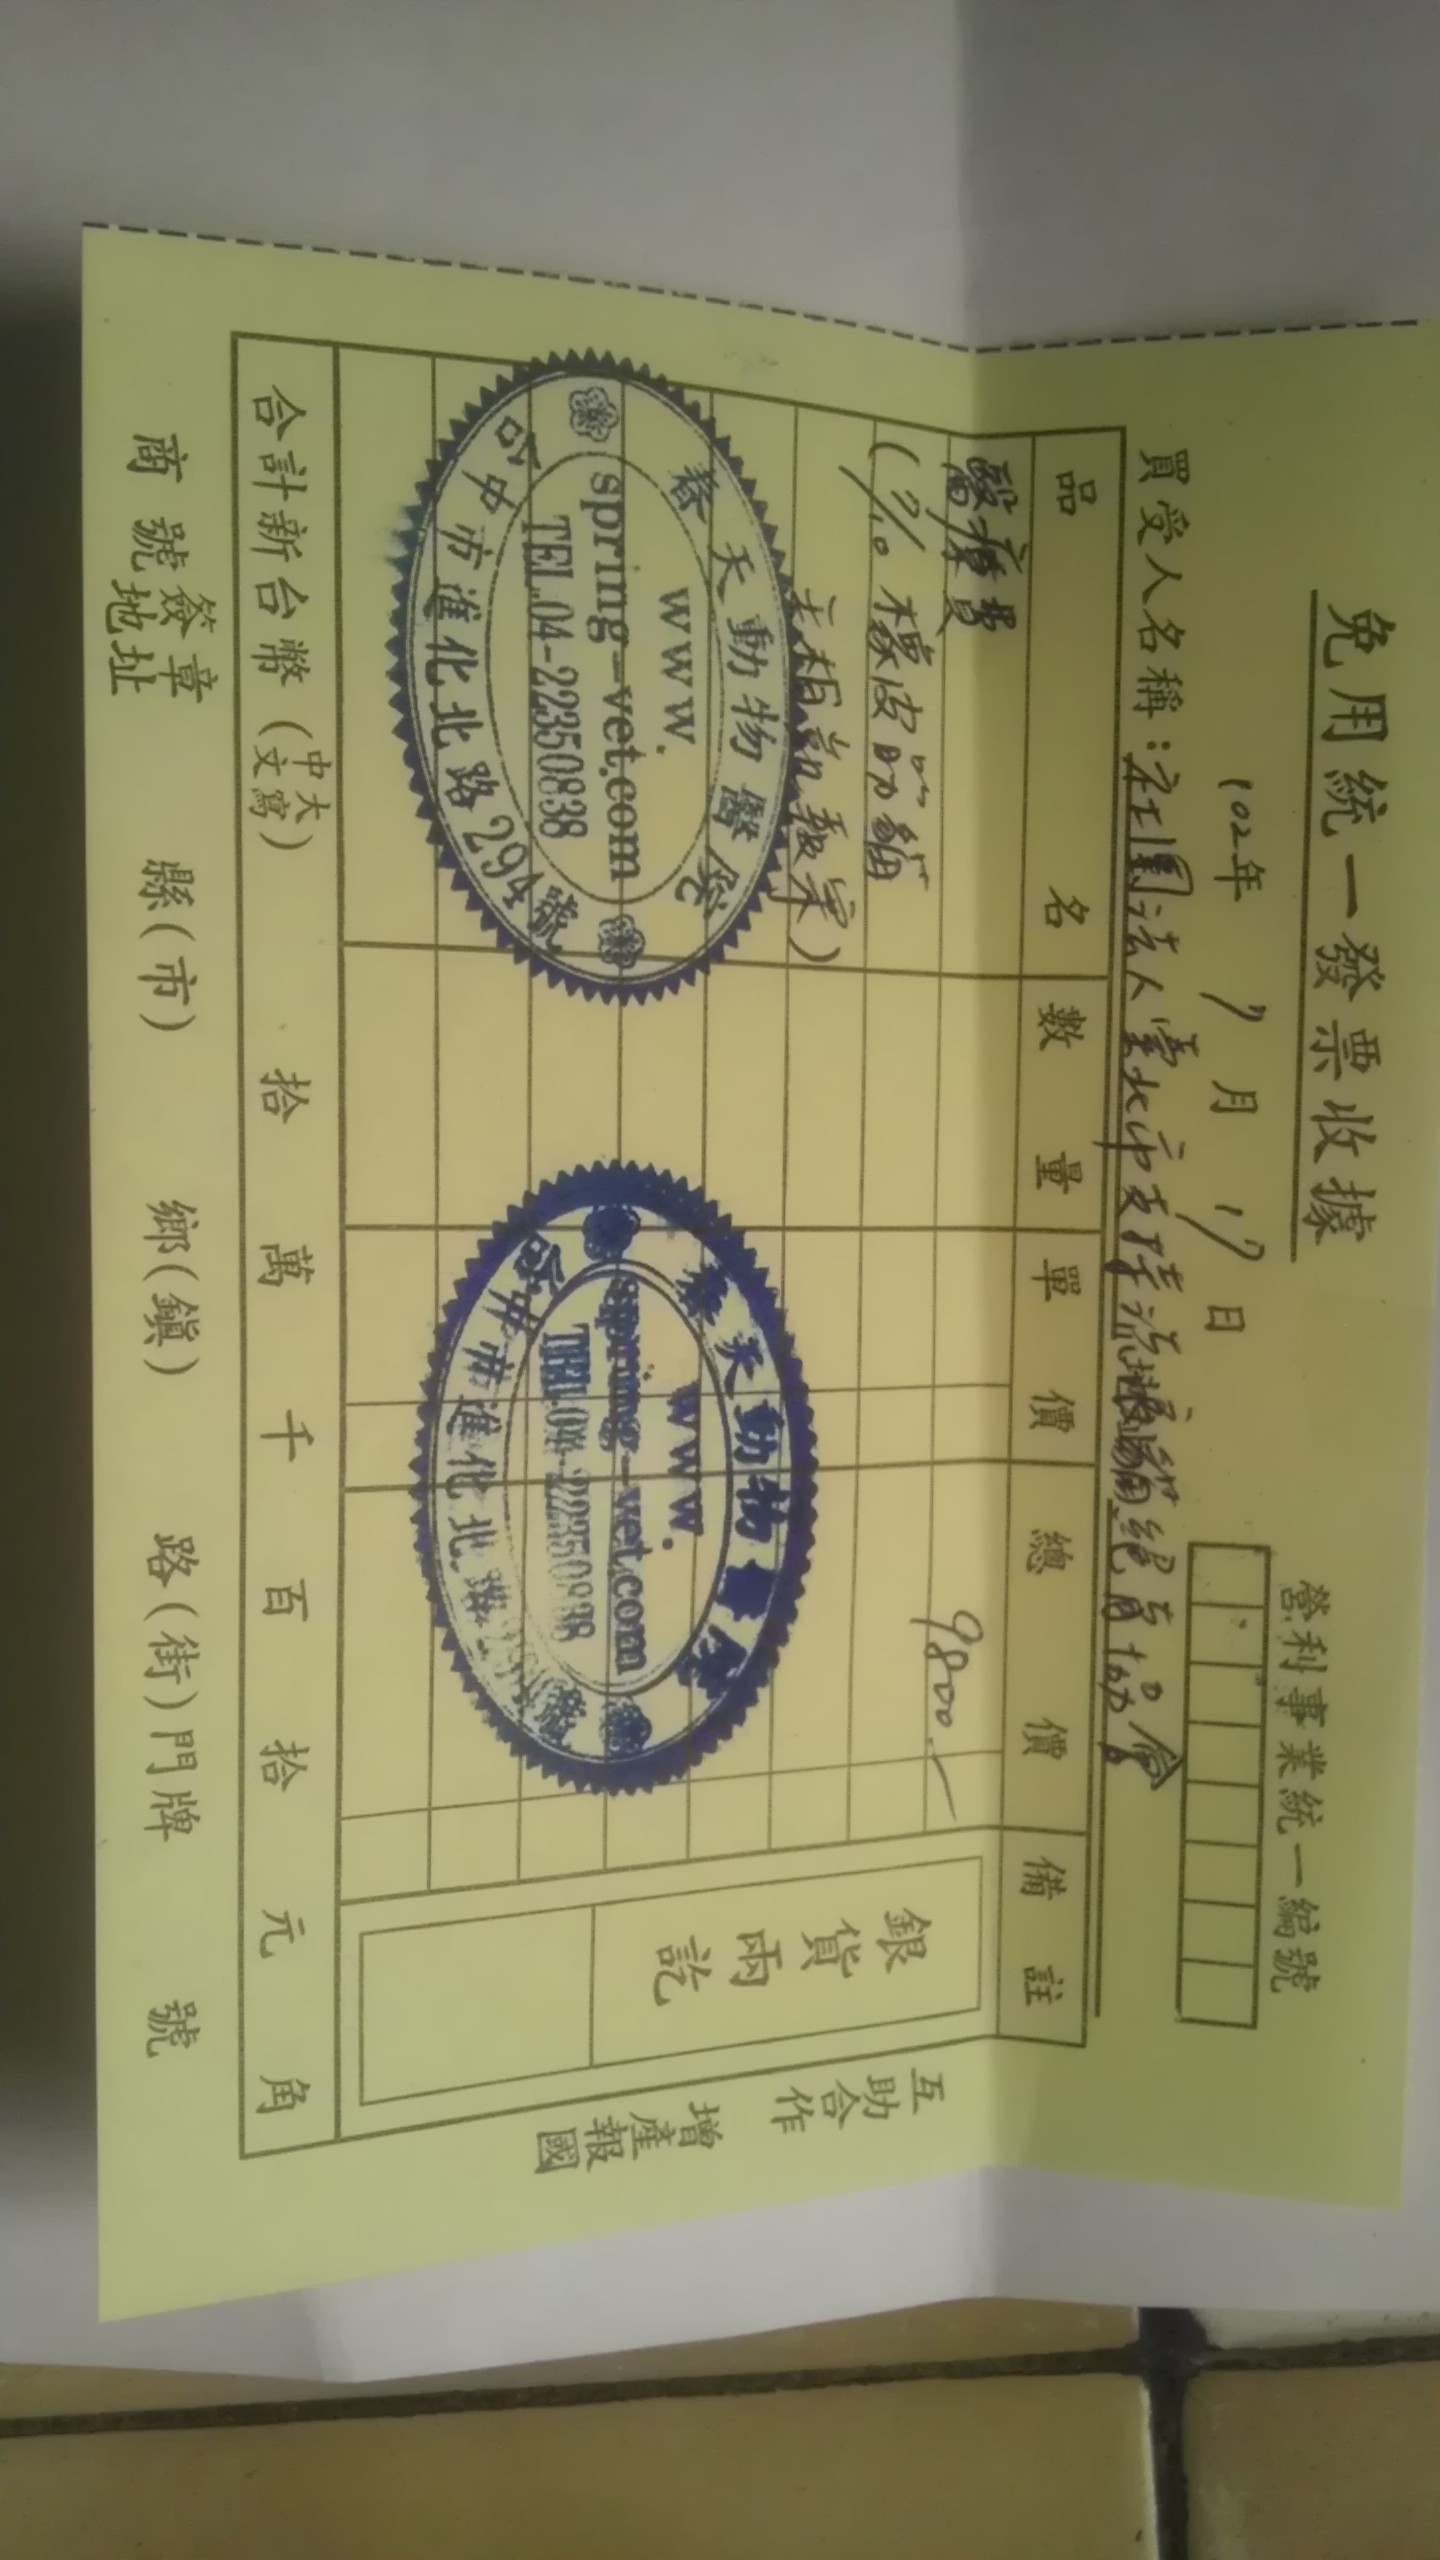 免用統一發票收據
營利事業統一編號
102年 7月 17日
買受人名稱：社團法人臺北市支持流浪貓絕育協會
品名 數量 單價 總價 備註
醫療費 9800.—
(7/10 橡皮筋貓
銀貨兩訖
春天動物醫院
www.
spring-vet.com
TEL.04-22350838
台中市進化北路294號
春天動物醫院
www.
spring-vet.com
TEL.04-22350838
台中市進化北路294號
合計新台幣(中文大寫) 拾 萬 千 百 拾 元 角
商號簽章地址 縣(市) 鄉(鎮) 路(街)門牌 號
互助合作
增產報國